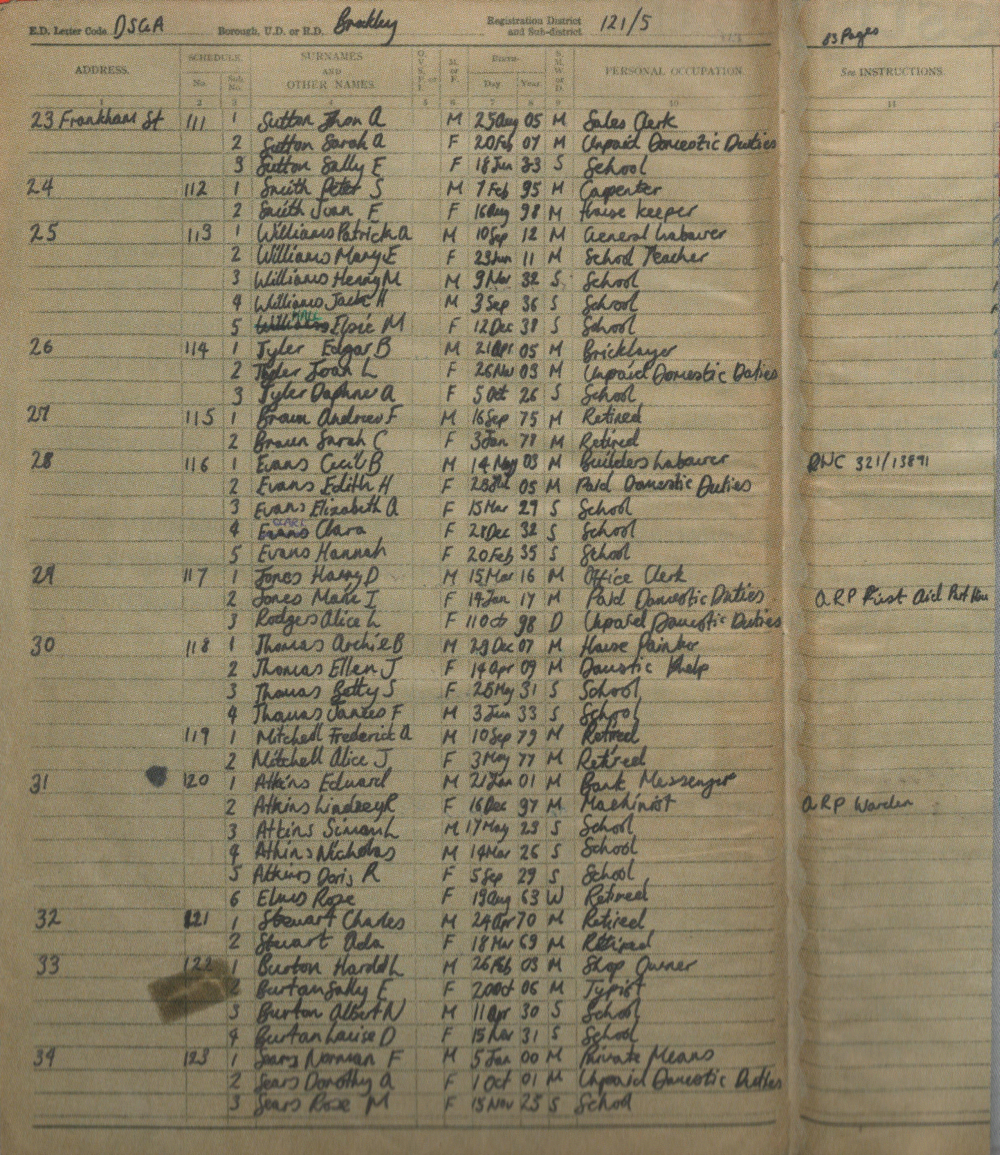 E.D. Letter Code DSGA Borough, U.D. or R.D. Brockley Registration District and Sub-district 121/5
83 Pages
ADDRESS. SCHEDULE. No. Sub. No. SURNAMES AND OTHER NAMES. O. V. S. P. or M. or F. BIRTH- Day Year S. M. W. or D. PERSONAL OCCUPATION. See INSTRUCTIONS.
1 2 3 4 5 6 7 8 9 10 11
23 Frankham St 111 1 Sutton Jhon A M 25 Aug 05 M Sales Clerk
2 Sutton Sarah A F 20 Feb 07 M Unpaid Domestic Duties
3 Sutton Sally E F 18 Jun 33 S School
24 112 1 Smith Peter S M 7 Feb 95 M Carpenter
2 Smith Joan F F 16 Aug 98 M House keeper
25 113 1 Williams Patrick A M 10 Sep 12 M General Labourer
2 Williams Mary E F 23 Jun 11 M School Teacher
3 Williams Henry M M 9 Mar 32 S School
4 Williams Jack H M 3 Sep 36 S School
5 Williams HALL Elsie M F 12 Dec 38 S School
26 114 1 Tyler Edgar B M 21 Apr 05 M Bricklayer
2 Tyler Joan L F 26 Nov 03 M Unpaid Domestic Duties
3 Tyler Daphne A F 5 Oct 26 S School
27 115 1 Brown Andrew F M 16 Sep 75 M Retired
2 Brown Sarah C F 3 Jan 78 M Retired
28 116 1 Evans Cecil B M 14 May 03 M Builders Labourer RNC 321/13891
2 Evans Edith H F 23 Jul 05 M Paid Domestic Duties
3 Evans Elizabeth A F 15 Mar 29 S School
4 Evans CLARK Clara F 28 Dec 32 S School
5 Evans Hannah F 20 Feb 35 S School
29 117 1 Jones Harry D M 15 Mar 16 M Office Clerk
2 Jones Marie I F 14 Jan 17 M Paid Domestic Duties ARP First Aid Part
3 Rodgers Alice L F 11 Oct 98 D Unpaid Domestic Duties
30 118 1 Thomas Archie B M 29 Dec 07 M House Painter
2 Thomas Ellen J F 14 Apr 09 M Domestic help
3 Thomas Betty S F 25 May 31 S School
4 Thomas James F M 3 Jun 33 S School
119 1 Mitchell Frederick A M 10 Sep 79 M Retired
2 Mitchell Alice J F 3 May 77 M Retired
31 120 1 Atkins Edward M 21 Jan 01 M Bank Messenger
2 Atkins Lindzey R F 16 Dec 97 M Machinist ARP Warden
3 Atkins Simon L M 17 May 23 S School
4 Atkins Nicholas M 14 Mar 26 S School
5 Atkins Doris R F 5 Sep 29 S School
6 Elms Rose F 19 Aug 63 W Retired
32 121 1 Stewart Charles M 24 Apr 70 M Retired
2 Stuart Ada F 18 Mar 69 M Retired
33 122 1 Burton Harold L M 26 Feb 03 M Shop Owner
2 Burton Sally E F 20 Oct 06 M Typist
3 Burton Albert N M 11 Apr 30 S School
4 Burton Louise D F 15 Nov 31 S School
34 123 1 Sears Norman F M 5 Jan 00 M Private Means
2 Sears Dorothy A F 1 Oct 01 M Unpaid Domestic Duties
3 Sears Rose M F 15 Nov 25 S School